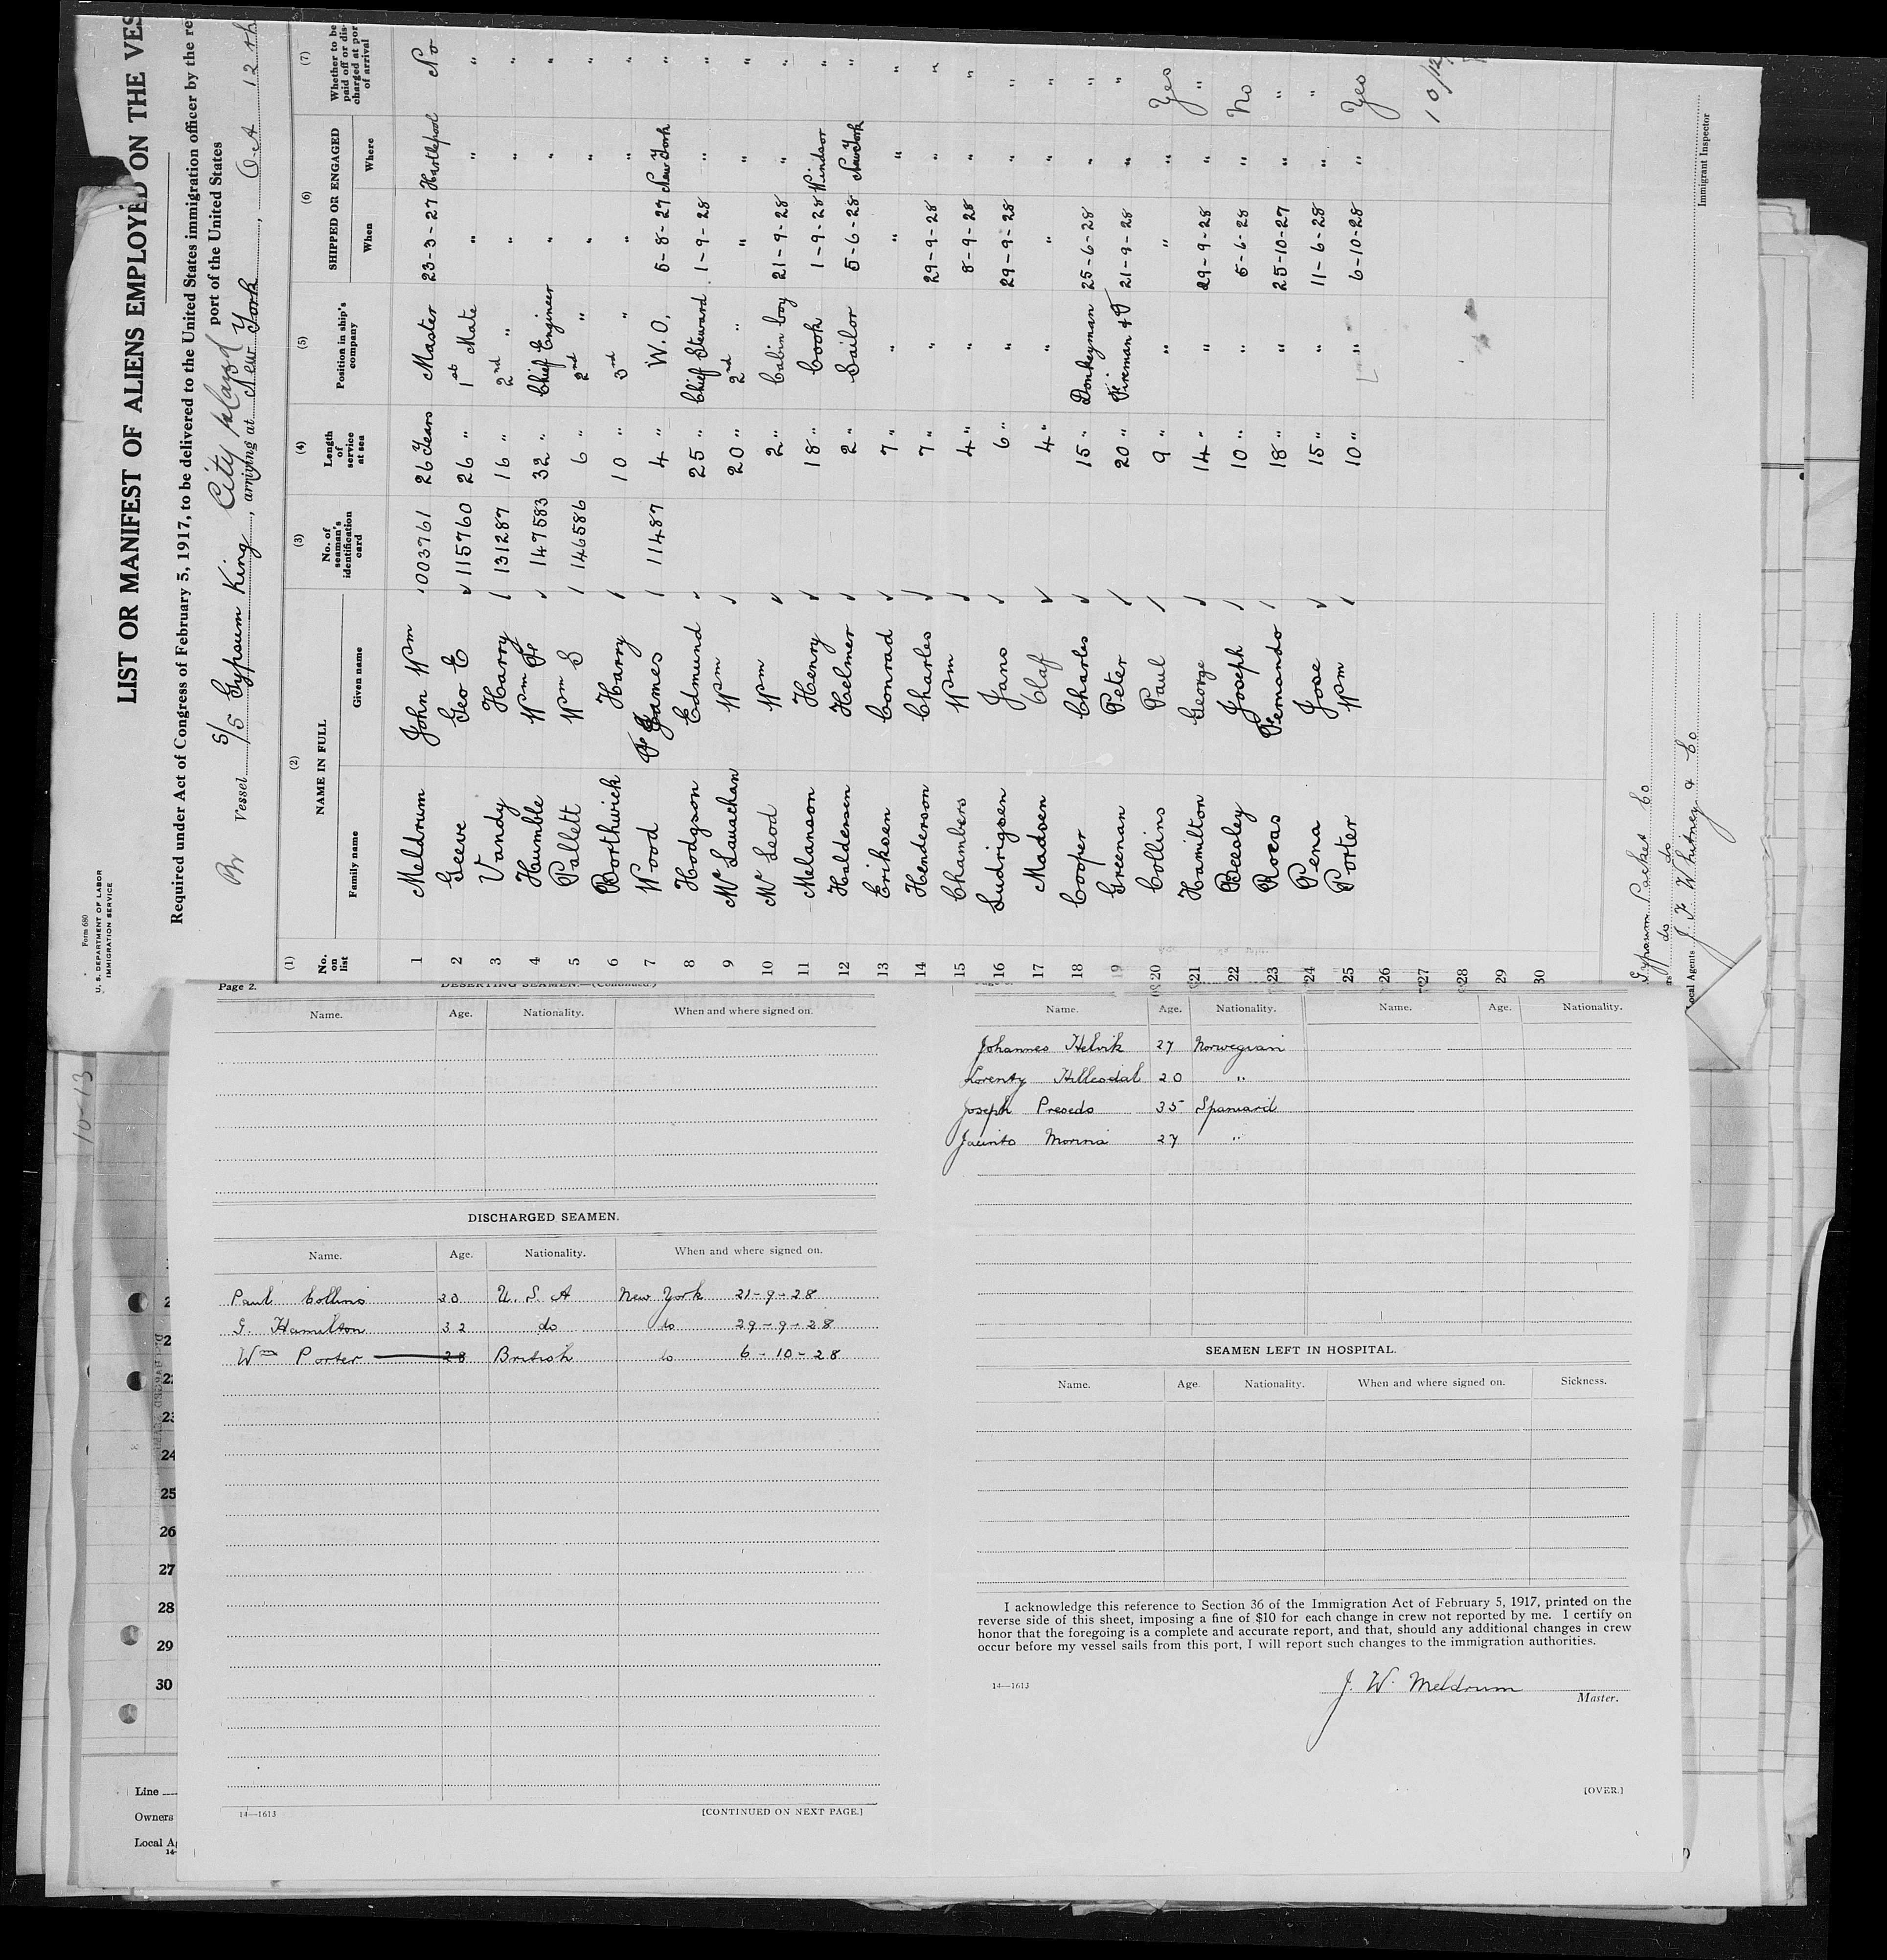 Form 680
U. S. DEPARTMENT OF LABOR
IMMIGRATION SERVICE
LIST OR MANIFEST OF ALIENS EMPLOYED ON THE VES
Required under Act of Congress of February 5, 1917, to be delivered to the United States immigration officer by the re
port of the United States
Br Vessel S/S Gypsum King, arriving at New York, Oct 12th
City Island
(1) (2) (3) (4) (5) (6) (7)
No. on list NAME IN FULL No. of seaman's identification card Length of service at sea Position in ship's company SHIPPED OR ENGAGED Whether to be paid off or discharged at port of arrival
Family name Given name When Where
1 Meldrum John Wm 1003761 26 Years Master 23-3-27 Hartlepool No
2 Geeve Geo E 115760 26 " 1st Mate " " "
3 Vandy Harry 131287 16 " 2nd " " " "
4 Humble Wm 147583 32 " Chief Engineer " " "
5 Pallett Wm S 146586 6 " 2nd " " " "
6 Borthwick Harry 10 " 3rd " " " "
7 Wood James 11487 4 " W.O. 5-8-27 New York "
8 Hodgson Edmund 25 " Chief Steward 1-9-28 " "
9 Mc Lauachan Wm 20 " 2nd " " " "
10 Mc Leod Wm 2 " Cabin boy 21-9-28 " "
11 Melanson Henry 18 " Cook 1-9-28 Windsor "
12 Haldersen Helmer 2 " Sailor 5-6-28 New York "
13 Eriksen Conrad 7 " " " " "
14 Henderson Charles 7 " " 29-9-28 " "
15 Chambers Wm 4 " " 8-9-28 " "
16 Ludrigsen Jans 6 " " 29-9-28 " "
17 Madsen Olaf 4 " " " " "
18 Cooper Charles 15 " Donkeyman 25-6-28 " "
19 Greenan Peter 20 " Fireman & T 21-9-28 " "
20 Collins Paul 9 " " " " Yes
21 Hamilton George 14 " " 29-9-28 " "
22 Beesley Joseph 10 " " 5-6-28 " No
23 Rocas Fernando 18 " " 25-10-27 " "
24 Pena Jose 15 " " 11-6-28 " "
25 Porter Wm 10 " " 6-10-28 " Yes
26
27
28
29
30
10/12
Gypsum Packet Co
do do
Local Agents J. F. Whitney & Co
Immigrant Inspector
10-13
Page 2. DESERTING SEAMEN.—(Continued.)
Name. Age. Nationality. When and where signed on.
DISCHARGED SEAMEN.
Name. Age. Nationality. When and where signed on.
Paul Collins 30 U. S. A New York 21-9-28
G. Hamilton 32 do do 29-9-28
Wm Porter 28 British do 6-10-28
14—1613 [CONTINUED ON NEXT PAGE.]
Name. Age. Nationality. Name. Age. Nationality.
Johannes Helvik 27 Norwegian
Lorentz Hillesdal 20 "
Joseph Presedo 35 Spaniard
Jacinto Morina 27 "
SEAMEN LEFT IN HOSPITAL.
Name. Age. Nationality. When and where signed on. Sickness.
I acknowledge this reference to Section 36 of the Immigration Act of February 5, 1917, printed on the
reverse side of this sheet, imposing a fine of $10 for each change in crew not reported by me. I certify on
honor that the foregoing is a complete and accurate report, and that, should any additional changes in crew
occur before my vessel sails from this port, I will report such changes to the immigration authorities.
14—1613
J. W. Meldrum
Master.
[OVER.]
22
23
24
25
26
27
28
29
30
Line
Owners
Local A
14-